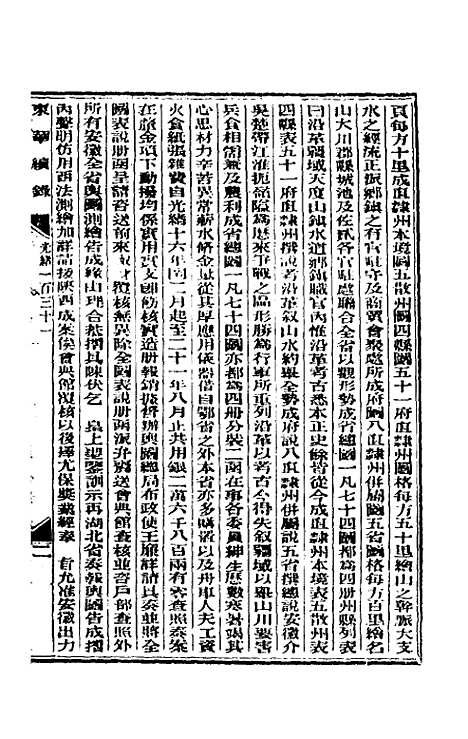 頁每方十里成直隸州本境圖五散州圖四縣圖五十一府直隸州圖格每方五十里繪山之幹脈大支
水之經流正派鄉鎮之有官駐守及商賈會聚處所成府圖八直隸州併屬圖五省圖格每方百里繪名
山大川郡縣城池及佐貳各官駐處聯合全省以觀形勢成省總圖一凡七十四圖都爲四册州縣列表
曰沿革疆域天度山鎮水道鄉鎮職官內惟沿革考古悉本正史餘皆從今成直隸州本境表五散州表
四縣表五十一府直隸州撰說考沿革敘山水約舉全勢成府說八直隸州併屬說五省撰總說安徽介
吳楚帶江淮扼險爲歷來爭戰之區形勝爲行軍所重列沿革以考古今得失敘疆域以
山川要害
兵食相
及農利成省總圖一凡七十四圖亦都爲四册分裝二函在事各委員紳生歷數寒暑竭其
心思材力辛苦異常薪水
金
從其厚應用儀器借自鄂省之外本省亦多購置以及舟車人夫工資
火食紙張雜費自光緒十六年閏二月起至二十一年八月止共用銀二萬六千八百兩有零查照奏案
在
金項下動撥均係實用實支
飭核實造册報銷據督辦輿圖總局布政使王廉詳請具奏並將全
圖表說册函呈請咨送前來
覆核無異除全圖表說册函派弁
送會典館查核並咨戶部查照外
所有安徽全省輿圖測繪告成緣由理合恭摺具陳伏乞　皇上聖鑒訓示再湖北省奏報輿圖告成摺
內聲明仿用西法測繪加詳請援陝西成案俟會典館覆核以後擇尤保獎業經奏　旨允准安徽出力
東華續錄
光緒一百三十一
二